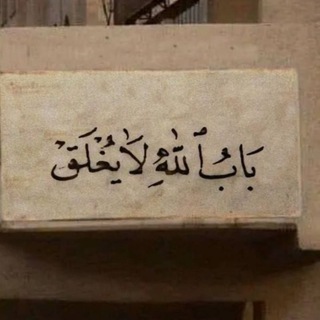 بَابُ ٱللَّهِ لَا يُغْلَقْ